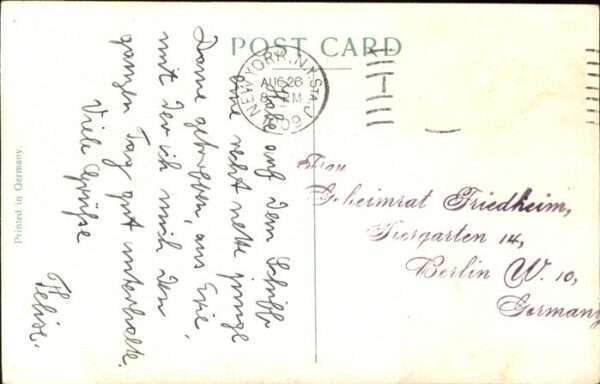 POST CARD
NEW YORK, N.Y. STA. J
AUG 26
8 PM
09
Printed in Germany.
Habe auf dem Schiff
eine recht nette junge
Dame getroffen, aus Erie,
mit der ich mich den
ganzen Tag gut unterhalte.
Viele Grüße
Frau
Geheimrat Friedheim,
Tiergarten 14,
Berlin W. 10,
Germany